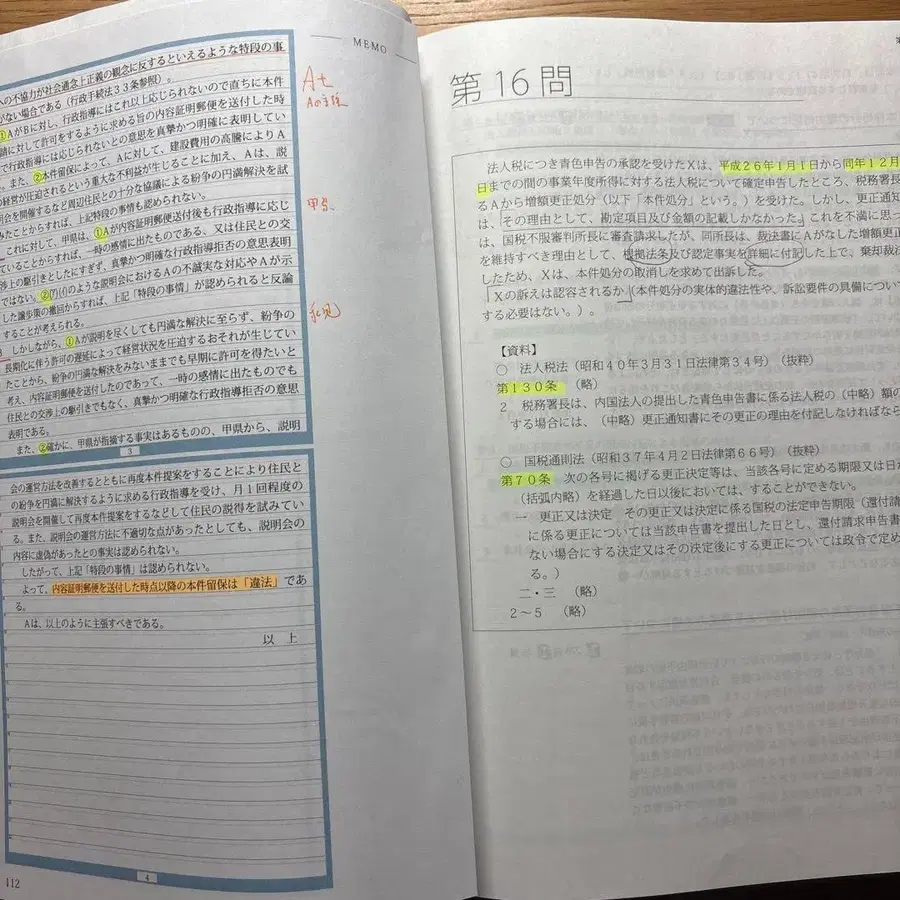 への不協力が社会通念上正義の観念に反するといえるような特段の事
がない場合である（行政手続法33条参照）。
①AがBに対し、行政指導にはこれ以上応じられないので直ちに本件
請に対して許可をするように求める旨の内容証明郵便を送付した時
で行政指導には応じられないとの意思を真摯かつ明確に表明してい
また、②本件留保によって、Aに対して、建設費用の高騰によりA
経営が圧迫されるという重大な不利益が生じることに加え、Aは、説
明会を開催するなど周辺住民との十分な協議による紛争の円満解決を試
みたことからすれば、上記特段の事情も認められない。
これに対して、甲県は、①Aが内容証明郵便送付後も行政指導に応じ
ていることからすれば、一時の感情に出たものである、又は住民との交
渉上の駆引きとしたにすぎず、真摯かつ明確な行政指導拒否の意思表明
ではない。②(ア)(イ)のような説明会におけるAの不誠実な対応やAが示
した譲歩策の撤回からすれば、上記「特段の事情」が認められると反論
することが考えられる。
しかしながら、①Aが説明を尽くしても円満な解決に至らず、紛争の
長期化に伴う許可の遅延によって経営状況を圧迫するおそれが生じてい
たことから、紛争の円満な解決をみないままでも早期に許可を得たいと
考え、内容証明郵便を送付したのであって、一時の感情に出たものでも
住民との交渉上の駆引きでもなく、真摯かつ明確な行政指導拒否の意思
表明である。
また、②確かに、甲県が指摘する事実はあるものの、甲県から、説明
3
会の運営方法を改善するとともに再度本件提案をすることにより住民と
の紛争を円満に解決するように求める行政指導を受け、月1回程度の
説明会を開催して再度本件提案をするなどして住民の説得を試みてい
る。また、説明会の運営方法に不適切な点があったとしても、説明会の
内容に虚偽があったとの事実は認められない。
したがって、上記「特段の事情」は認められない。
よって、内容証明郵便を送付した時点以降の本件留保は「違法」であ
る。
Aは、以上のように主張すべきである。
以 上
4
112
MEMO
Aの主張
甲県
私見
第16問
法人税につき青色申告の承認を受けたXは、平成26年1月1日から同年12月
日までの間の事業年度所得に対する法人税について確定申告したところ、税務署長
るAから増額更正処分（以下「本件処分」という。）を受けた。しかし、更正通知
は、その理由として、勘定項目及び金額の記載しかなかった。これを不満に思っ
は、国税不服審判所長に審査請求したが、同所長は、裁決書にAがなした増額更正
を維持すべき理由として、根拠法条及び認定事実を詳細に付記した上で、棄却裁決
したため、Xは、本件処分の取消しを求めて出訴した。
「Xの訴えは認容されるか」（本件処分の実体的違法性や、訴訟要件の具備につい
する必要はない。）。
【資料】
○ 法人税法（昭和40年3月31日法律第34号）（抜粋）
第130条 （略）
2 税務署長は、内国法人の提出した青色申告書に係る法人税の（中略）額の
する場合には、（中略）更正通知書にその更正の理由を付記しなければなら
○ 国税通則法（昭和37年4月2日法律第66号）（抜粋）
第70条 次の各号に掲げる更正決定等は、当該各号に定める期限又は日か
（括弧内略）を経過した日以後においては、することができない。
一 更正又は決定 その更正又は決定に係る国税の法定申告期限（還付請
に係る更正については当該申告書を提出した日とし、還付請求申告書
ない場合にする決定又はその決定後にする更正については政令で定め
る。）
二・三 （略）
2～5 （略）